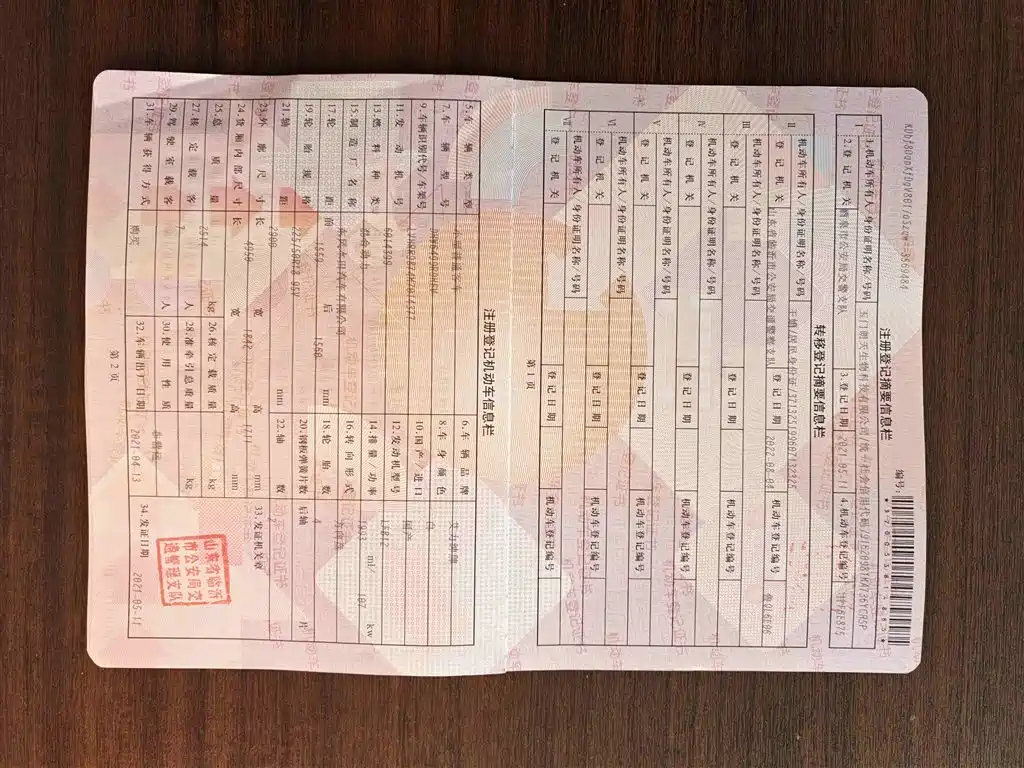 注册登记摘要信息栏
编号:
I
1.机动车所有人/身份证明名称/号码
2.登记机关
酒泉市公安局交警支队
3.登记日期
2021-05-11
4.机动车登记编号
转移登记摘要信息栏
II
机动车所有人/身份证明名称/号码
登记机关
山东省临沂市公安局交通警察支队
登记日期
2022-08-04
机动车登记编号
III
机动车所有人/身份证明名称/号码
登记机关
登记日期
机动车登记编号
IV
机动车所有人/身份证明名称/号码
登记机关
登记日期
机动车登记编号
V
机动车所有人/身份证明名称/号码
登记机关
登记日期
机动车登记编号
VI
机动车所有人/身份证明名称/号码
登记机关
登记日期
机动车登记编号
VII
机动车所有人/身份证明名称/号码
登记机关
登记日期
机动车登记编号
第1页
注册登记机动车信息栏
5.车辆类型
6.车辆品牌
7.车辆型号
8.车身颜色
白
9.车辆识别代号/车架号
10.国产/进口
国产
11.发动机号
6014399
12.发动机型号
13.燃料种类
混合动力
14.排量/功率
1993 ml/ 107 kw
15.制造厂名称
东风本田汽车有限公司
16.转向形式
方向盘
17.轮距
前 1550 后 1560 mm
18.轮胎数
4
19.轮胎规格
225/50R18 95V
20.钢板弹簧片数
后轴 片
21.轴距
2900 mm
22.轴数
2
23.外廓尺寸
长 4950 宽 1842 高 1711 mm
33.发证机关章
24.货厢内部尺寸
长 宽 高 mm
25.总质量
2514 kg
26.核定载质量
kg
27.核定载客
7 人
28.准牵引总质量
kg
29.驾驶室载客
人
30.使用性质
非营运
31.车辆获得方式
购买
32.车辆出厂日期
2021-04-13
34.发证日期
2021-05-11
山东省临沂
市公安局交
通警察支队
第2页